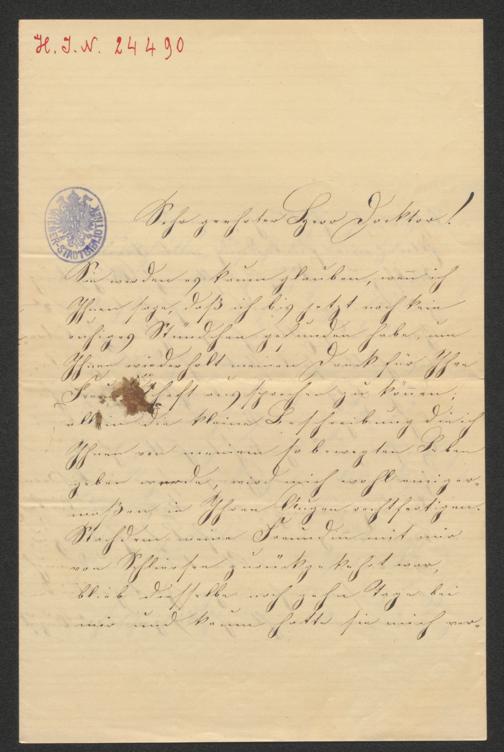 H. I. N. 24490
WIENER-STADTBIBLIOTHEK
Sehr geehrter Herr Docktor!
Sie werden es kaum glauben, wenn ich
Ihnen sage, daß ich bis jetzt noch kein
ruhiges Stündchen gefunden habe, um
Ihnen wiederholt meinen Dank für Ihre
aussprechen zu können;
allein die kleine Beschreibung die ich
Ihnen von meinem so bewegten Leben
geben werde, wird mich wohl einiger-
maßen in Ihren Augen rechtfertigen.
Nachdem meine Freundin mit mir
von Schliersee zurückgekehrt war,
blieb dieselbe noch zehn Tage bei
mir und kaum hatte sie mich ver-